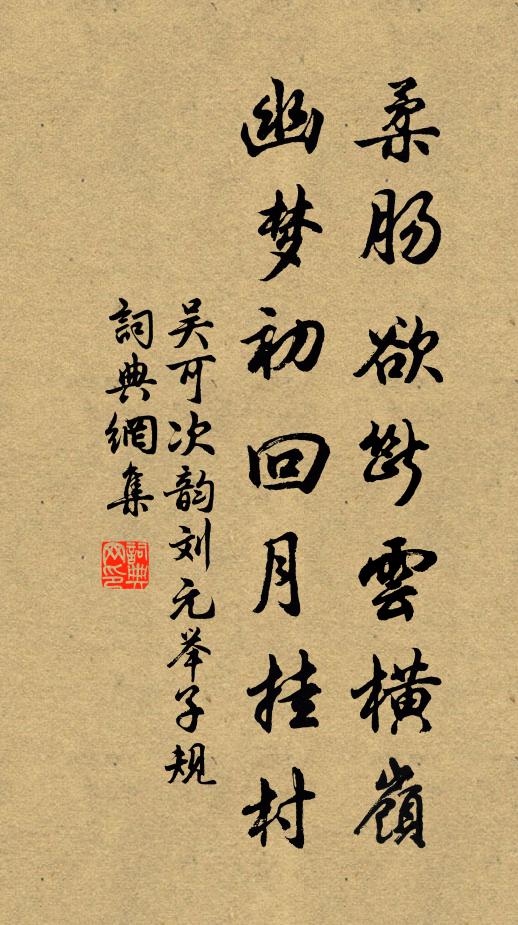 柔肠欲断雲横嶺
幽梦初回月挂村
吴可次韵刘元举子规
詞典網集
詞典网印